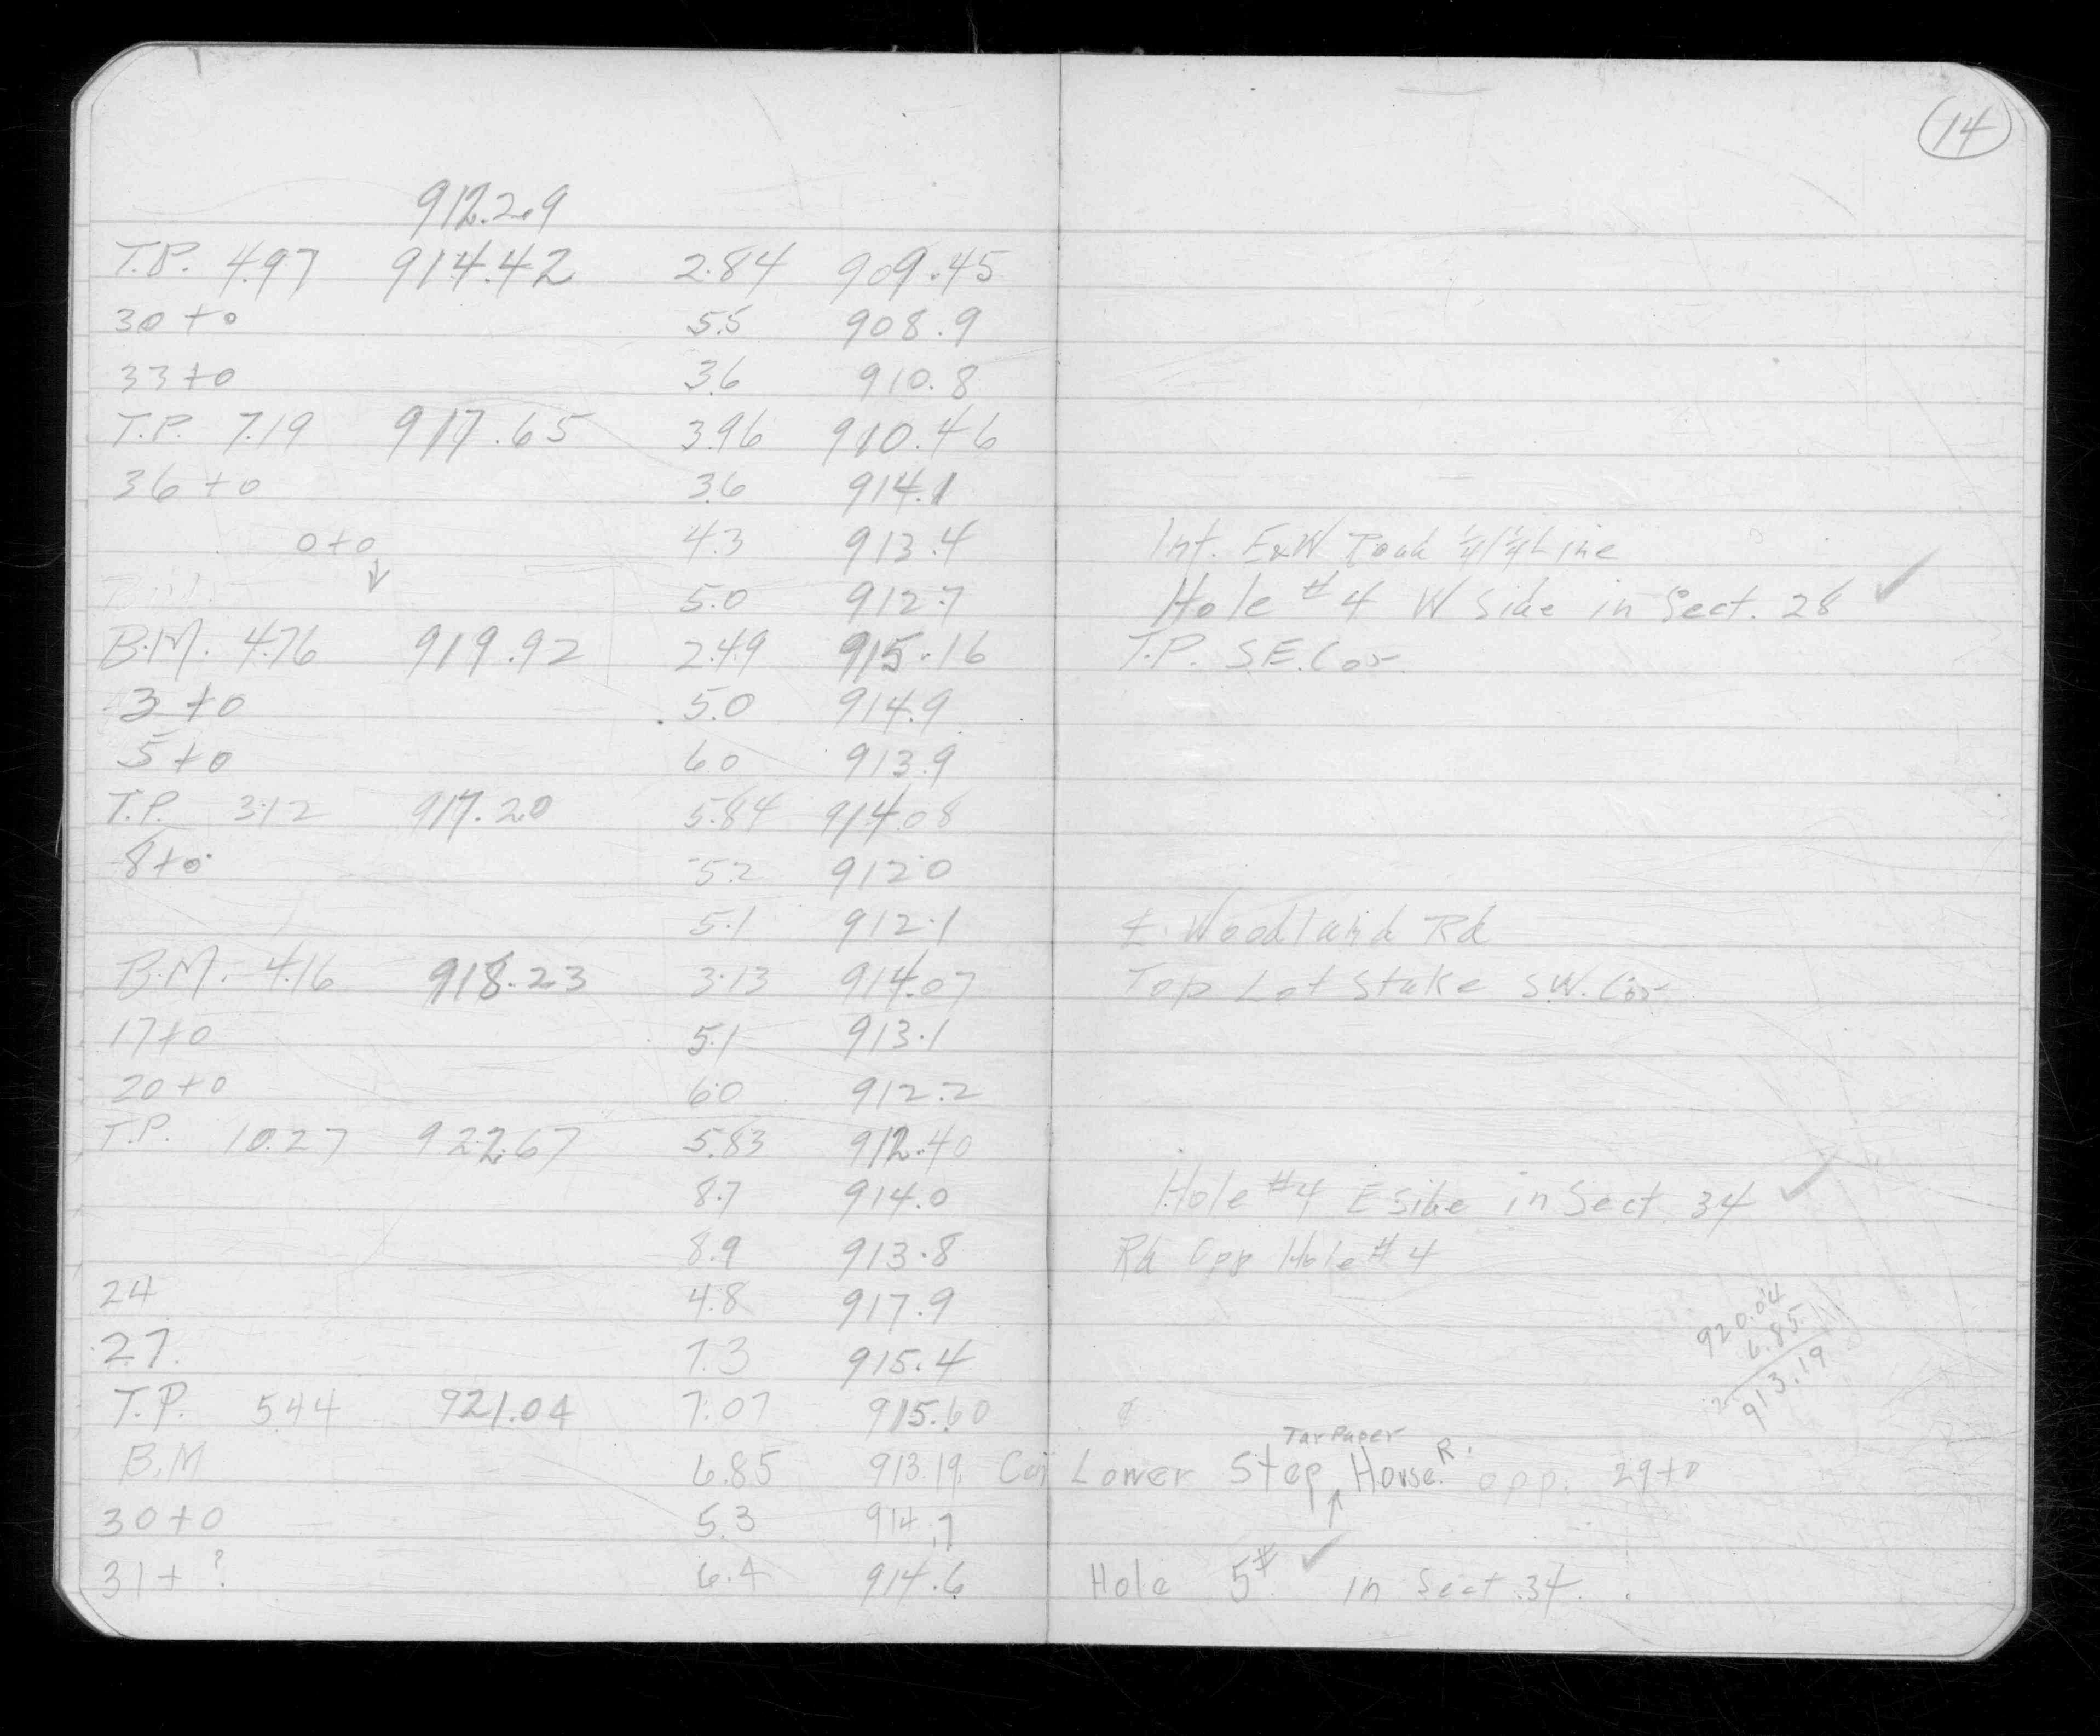 14
912.29
T.P. 4.97 914.42 2.84 909.45
30+0 5.5 908.9
33+0 3.6 910.8
T.P. 7.19 917.65 3.96 910.46
36+0 3.6 914.1
0+0 4.3 913.4 Int. E&W Road 1/4 1/4 Line
5.0 912.7 Hole #4 W Side in Sect. 28 ✓
B.M. 4.76 919.92 2.49 915.16 T.P. S.E. Cor.
3+0 5.0 914.9
5+0 6.0 913.9
T.P. 3.12 917.20 5.84 914.08
8+0 5.2 912.0
5.1 912.1 ℄. Woodland Rd
B.M. 4.16 918.23 3.13 914.07 Top Lot Stake S.W. Cor.
17+0 5.1 913.1
20+0 6.0 912.2
T.P. 10.27 922.67 5.83 912.40
8.7 914.0 Hole #4 E Side in Sect. 34 ✓
8.9 913.8 Rd Opp Hole #4
24 4.8 917.9
27. 7.3 915.4
920.04
6.85
913.19
T.P. 5.44 921.04 7.07 915.60 ℄
Tar Paper
B.M 6.85 913.19 Cor Lower Step ↑ House. R. opp. 29+0
30+0 5.3 914.7
31+? 6.4 914.6 Hole 5# ✓ in Sect. 34.